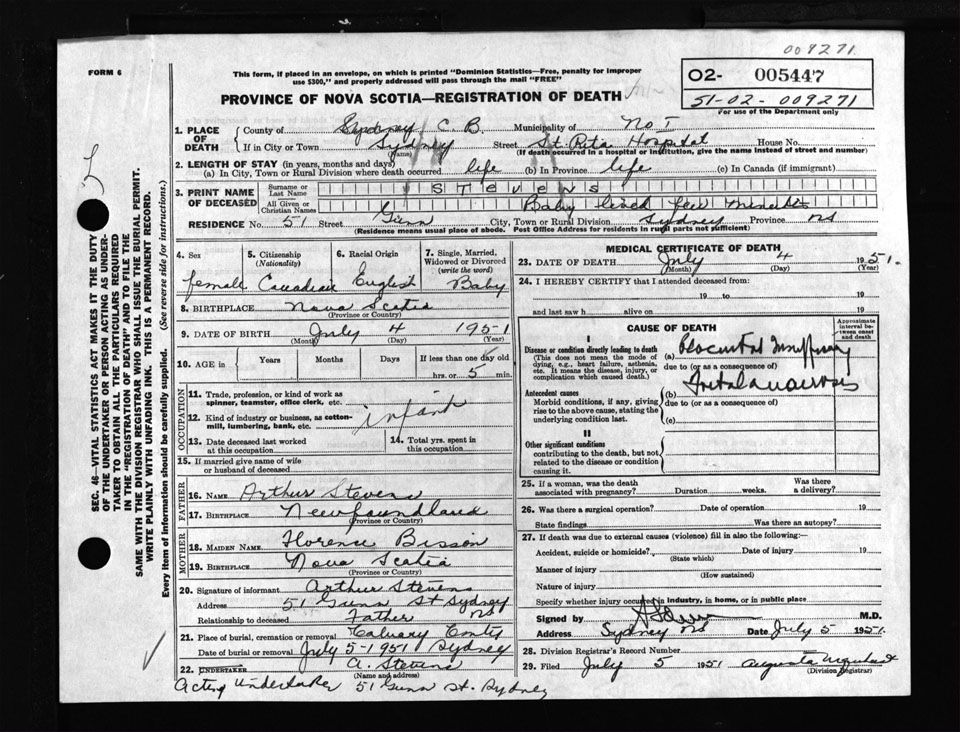 009271
FORM 6
This form, if placed in an envelope, on which is printed "Dominion Statistics—Free, penalty for improper
use $300," and properly addressed will pass through the mail "FREE"
02- 005447
51-02-009271
For use of the Department only
PROVINCE OF NOVA SCOTIA—REGISTRATION OF DEATH
1. PLACE OF DEATH
County of Sydney C. B. Municipality of No I
If in City or Town Sydney Street St. Rita Hospital House No.
(Name) (If death occurred in a hospital or institution, give the name instead of street and number)
2. LENGTH OF STAY (in years, months and days)
(a) In City, Town or Rural Division where death occurred life (b) In Province life (c) In Canada (if immigrant)
3. PRINT NAME OF DECEASED
Surname or Last Name Stevens
All Given or Christian Names Baby lived few minutes
RESIDENCE No. 51 Street Gunn City, Town or Rural Division Sydney Province NS
(Residence means usual place of abode. Post Office Address for residents in rural parts not sufficient)
4. Sex
female
5. Citizenship
(Nationality)
Canadian
6. Racial Origin
English
7. Single, Married,
Widowed or Divorced
(write the word)
Baby
8. BIRTHPLACE Nova Scotia
(Province or Country)
9. DATE OF BIRTH July 4 1951
(Month) (Day) (Year)
10. AGE in Years Months Days If less than one day old
hrs. or 5 min.
OCCUPATION
11. Trade, profession, or kind of work as
spinner, teamster, office clerk, etc.
12. Kind of industry or business, as cotton-
mill, lumbering, bank, etc. infant
13. Date deceased last worked
at this occupation
14. Total yrs. spent in
this occupation
15. If married give name of wife
or husband of deceased
FATHER
16. NAME Arthur Stevens
17. BIRTHPLACE Newfoundland
(Province or Country)
MOTHER
18. MAIDEN NAME Florence Bisson
19. BIRTHPLACE Nova Scotia
(Province or Country)
20. Signature of informant Arthur Stevens
Address 51 Gunn St Sydney
Relationship to deceased Father NS
21. Place of burial, cremation or removal Calvary
Date of burial or removal July 5-1951 Sydney
22. UNDERTAKER A. Stevens
(Name and address)
Acting Undertaker 51 Gunn St. Sydney
MEDICAL CERTIFICATE OF DEATH
23. DATE OF DEATH July 4 1951.
(Month) (Day) (Year)
24. I HEREBY CERTIFY that I attended deceased from:
19 to 19
and last saw h alive on 19
CAUSE OF DEATH
Approximate
interval be-
tween onset
and death
I
Disease or condition directly leading to death
(This does not mean the mode of
dying, e.g., heart failure, asthenia,
etc. It means the disease, injury, or
complication which caused death.)
(a)
due to (or as a consequence of)
Antecedent causes
Morbid conditions, if any, giving
rise to the above cause, stating the
underlying condition last.
(b)
due to (or as a consequence of)
(c)
II
Other significant conditions
contributing to the death, but not
related to the disease or condition
causing it.
25. If a woman, was the death
associated with pregnancy? Duration weeks. Was there
a delivery?
26. Was there a surgical operation? Date of operation 19
State findings Was there an autopsy?
27. If death was due to external causes (violence) fill in also the following:—
Accident, suicide or homicide? Date of injury 19
(State which)
Manner of injury
(How sustained)
Nature of injury
Specify whether injury occurred in industry, in home, or in public place
Signed by M.D.
Address Sydney NS Date July 5 1951.
28. Division Registrar's Record Number
29. Filed July 5 1951 Augusta Urquhart
(Division Registrar)
SEC. 46—VITAL STATISTICS ACT MAKES IT THE DUTY
OF THE UNDERTAKER OR PERSON ACTING AS UNDER-
TAKER TO OBTAIN ALL THE PARTICULARS REQUIRED
IN THE "REGISTRATION OF DEATH" AND TO FILE THE
SAME WITH THE DIVISION REGISTRAR WHO SHALL ISSUE THE BURIAL PERMIT.
WRITE PLAINLY WITH UNFADING INK. THIS IS A PERMANENT RECORD.
Every item of information should be carefully supplied. (See reverse side for instructions.)